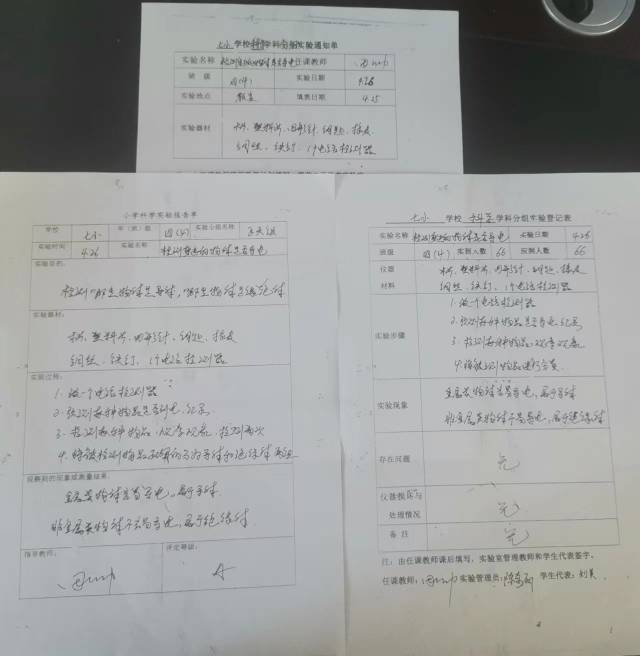 七小 学校 科学 学科分组实验通知单
实验名称 检测身边的物体是否导电 任课教师
班级 四(4) 实验日期 4.26
实验地点 教室 填表日期 4.25
实验器材 木片、塑料片、回形针、钥匙、橡皮
铜丝、铁钉、1个电路检测器
小学科学实验报告单
学校 七小 年(班)级 四(4) 实验小组名称
实验时间 4.26 实验名称 检测身边的物体是否导电
实验目的:
检测哪些物体是导体,哪些物体是绝缘体
实验器材:
木片、塑料片、回形针、钥匙、橡皮
铜丝、铁钉、1个电路检测器
实验过程:
1. 做一个电路检测器
2. 预测各种物品是否导电,纪录
3. 检测各种物品,观察现象,检测两次
4. 将被检测物品
观察到的现象或测量结果:
金属类物体容易导电,属于导体
非金属类物体不容易导电,属于绝缘体
指导教师:
评定等级:
A
七小 学校 科学 学科分组实验登记表
实验名称 检测身边的物体是否导电 实验日期 4.26
班级 四(4) 实到人数 66 应到人数 66
仪器材料 木片、塑料片、回形针、钥匙、橡皮
铜丝、铁钉、1个电路检测器
实验步骤 1. 做一个电路检测器
2. 预测各种物品是否导电,纪录
3. 检测各种物品,观察现象
4. 将被测物品进行分类
实验现象 金属类物体容易导电,属于导体
非金属类物体不容易导电,属于绝缘体
存在问题 无
仪器损坏与处理情况 无
备注 无
注:由任课教师课后填写,实验室管理教师和学生代表签字。
任课教师: 实验管理员: 学生代表:刘昊